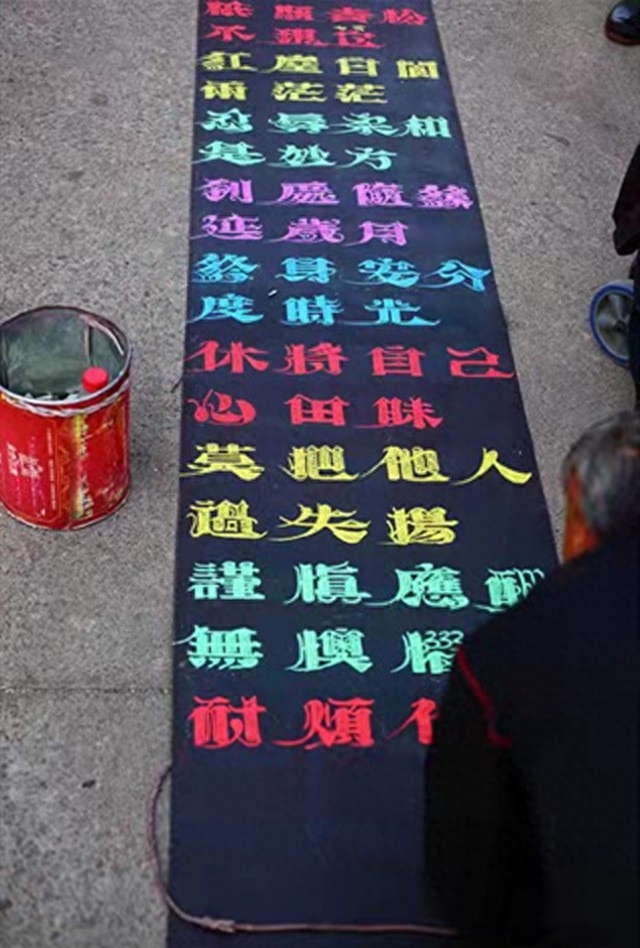 不
紅塵白
兩茫茫
忍辱柔相
是妙方
到處隨緣
延歲月
終身安分
度時光
休將自己
心田昧
莫把他人
過失揚
謹慎應酬
無懊惱
耐煩